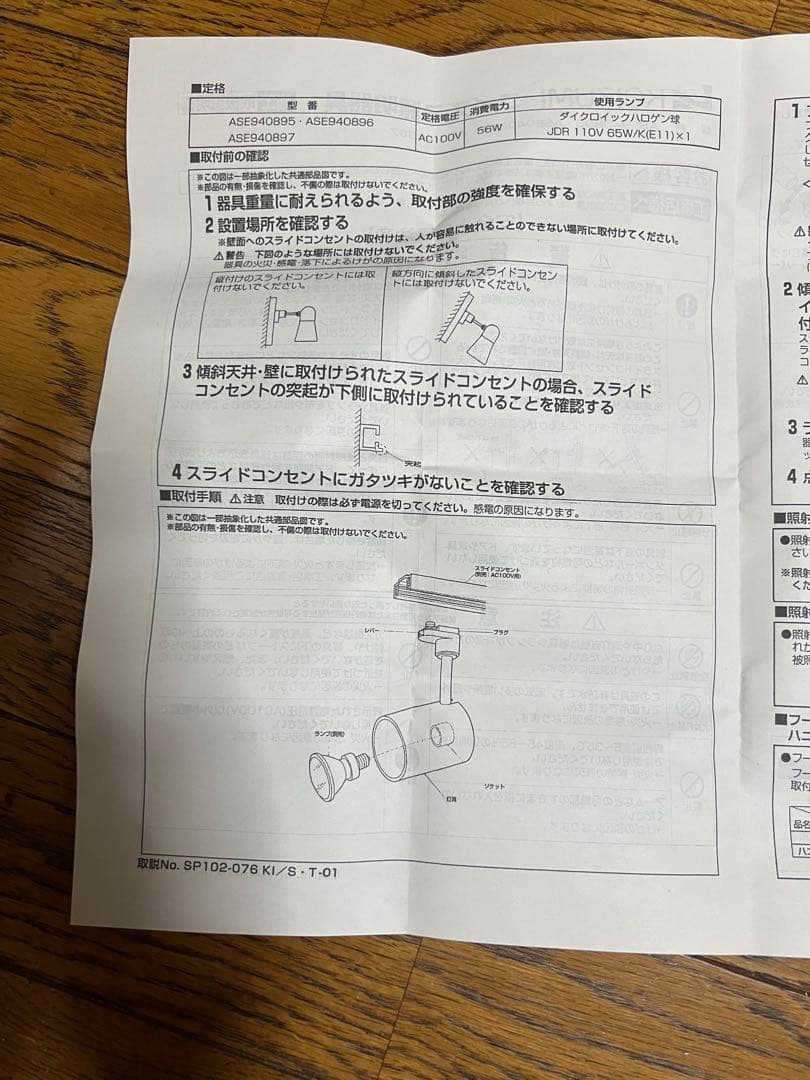 ■定格
型番
定格電圧
消費電力
使用ランプ
ASE940895・ASE940896
ASE940897
AC100V
56W
ダイクロイックハロゲン球
JDR 110V 65W/K(E11)×1
■取付前の確認
※この図は一部抽象化した共通部品図です。
※部品の有無・損傷を確認し、不備の際は取付けないでください。
1 器具重量に耐えられるよう、取付部の強度を確保する
2 設置場所を確認する
※壁面へのスライドコンセントの取付けは、人が容易に触れることのできない場所に取付けてください。
⚠警告 下図のような場所には取付けないでください。
器具の火災・感電・落下によるけがの原因になります。
縦付けのスライドコンセントには取
付けないでください。
縦方向に傾斜したスライドコンセン
トには取付けないでください。
3 傾斜天井・壁に取付けられたスライドコンセントの場合、スライド
コンセントの突起が下側に取付けられていることを確認する
突起
4 スライドコンセントにガタツキがないことを確認する
■取付手順 ⚠注意 取付けの際は必ず電源を切ってください。感電の原因になります。
※この図は一部抽象化した共通部品図です。
※部品の有無・損傷を確認し、不備の際は取付けないでください。
スライドコンセント
(別売:AC100V用)
レバー
プラグ
ランプ(別売)
ソケット
灯具
取説No. SP102-076 KI／S・T-01
1
2 傾
イ
付
3 ラ
4 点
■照射
●照射
さい
※照射
くだ
■照射
●照射
れか
被照
■フー
ハニ
●フー
取付
品名
ハニ